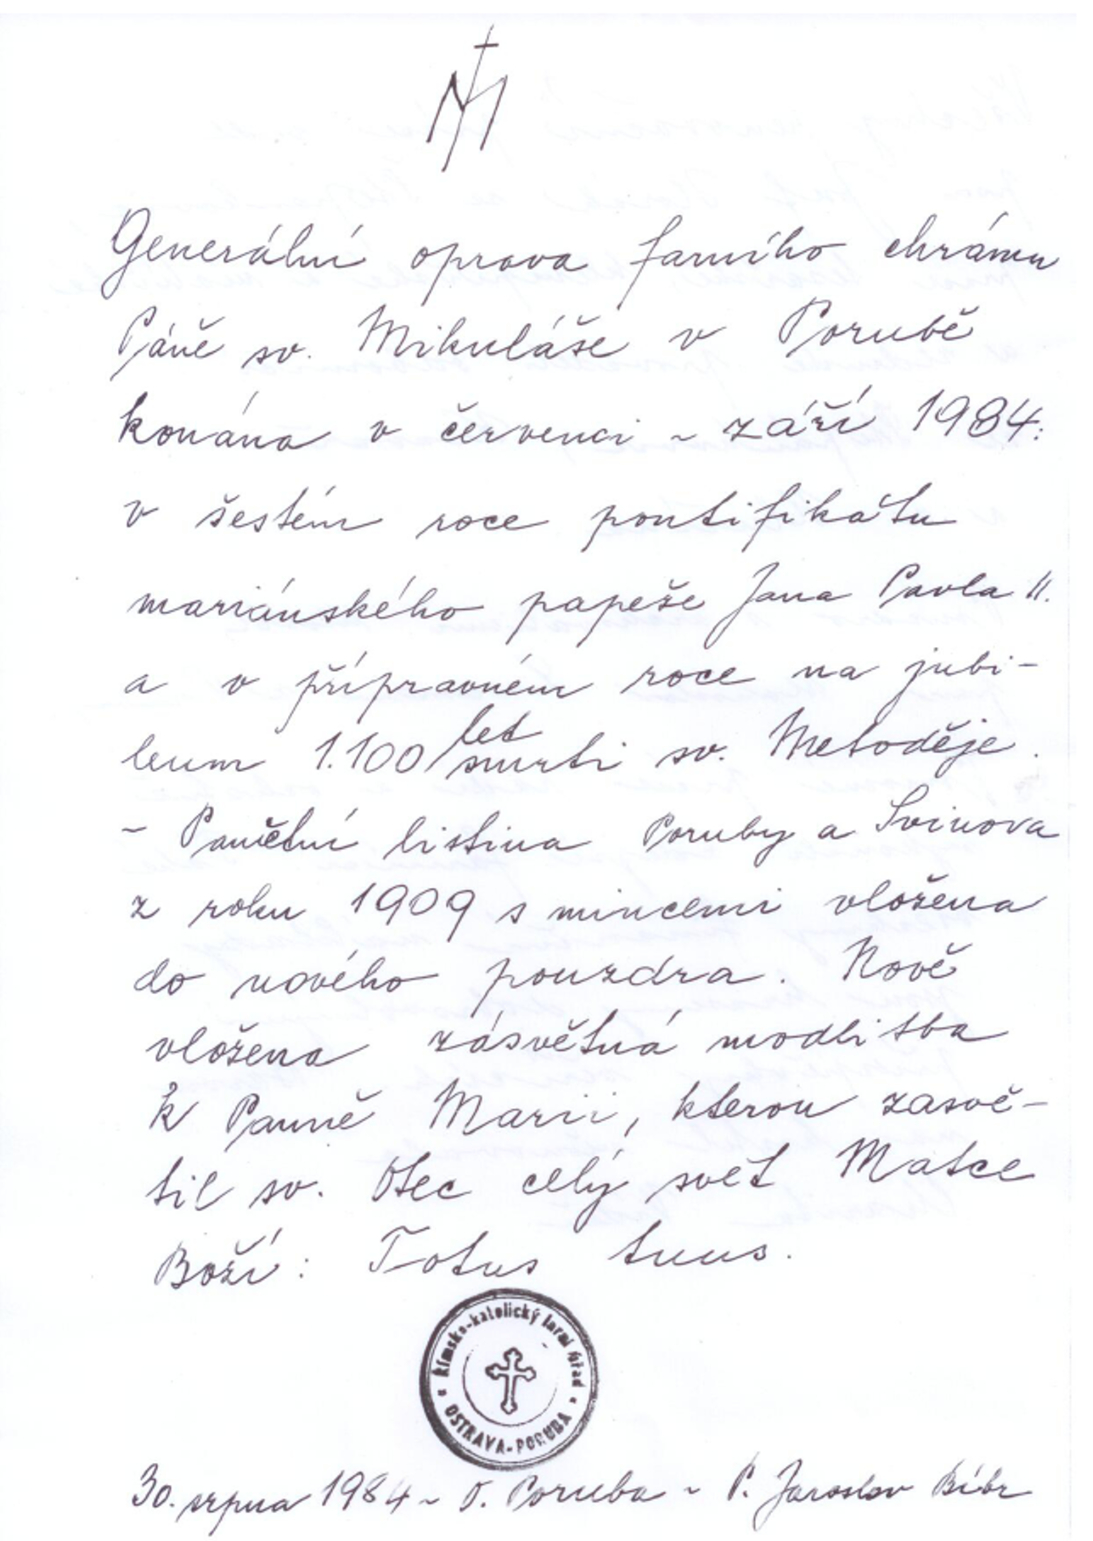 Generální oprava farního chrámu
Páně sv. Mikuláše v Porubě
konána v červenci - září 1984:
v šestém roce pontifikátu
mariánského papeže Jana Pavla II.
a v přípravném roce na jubi-
leum 1.100 let smrti sv. Metoděje.
- Pamětní listina Poruby a Svinova
z roku 1909 s mincemi vložena
do nového pouzdra. Nově
vložena zásvětná modlitba
k Panně Marii, kterou zasvě-
til sv. Otec celý svět Matce
Boží: Totus tuus.
Římsko-katolický farní úřad
OSTRAVA-PORUBA
30. srpna 1984 - O. Poruba - P. Jaroslav Bíbr